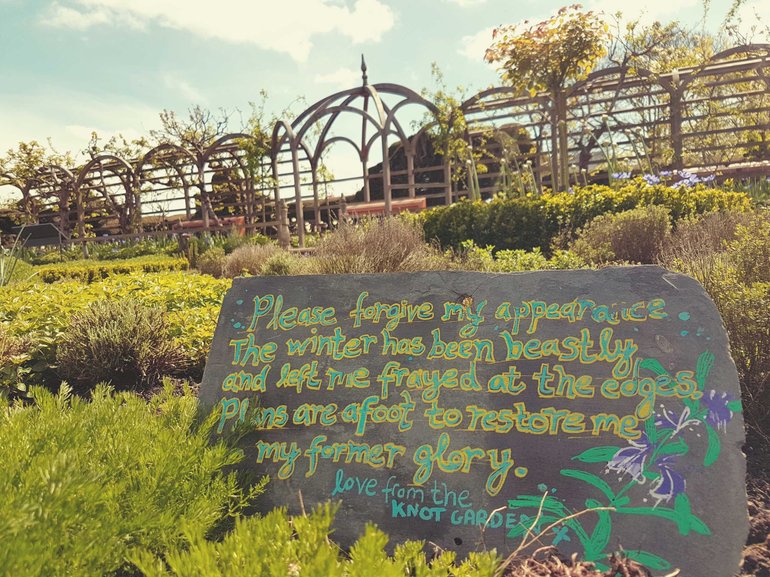 Please forgive my appearance.
The winter has been beastly
and left me frayed at the edges.
Plans are afoot to restore me
my former glory.
love from the
KNOT GARDEN x